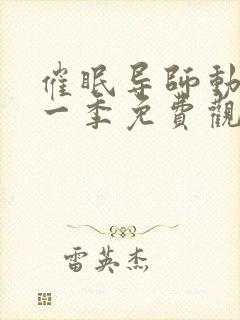 催眠导師動
一季免費觀
雷英杰